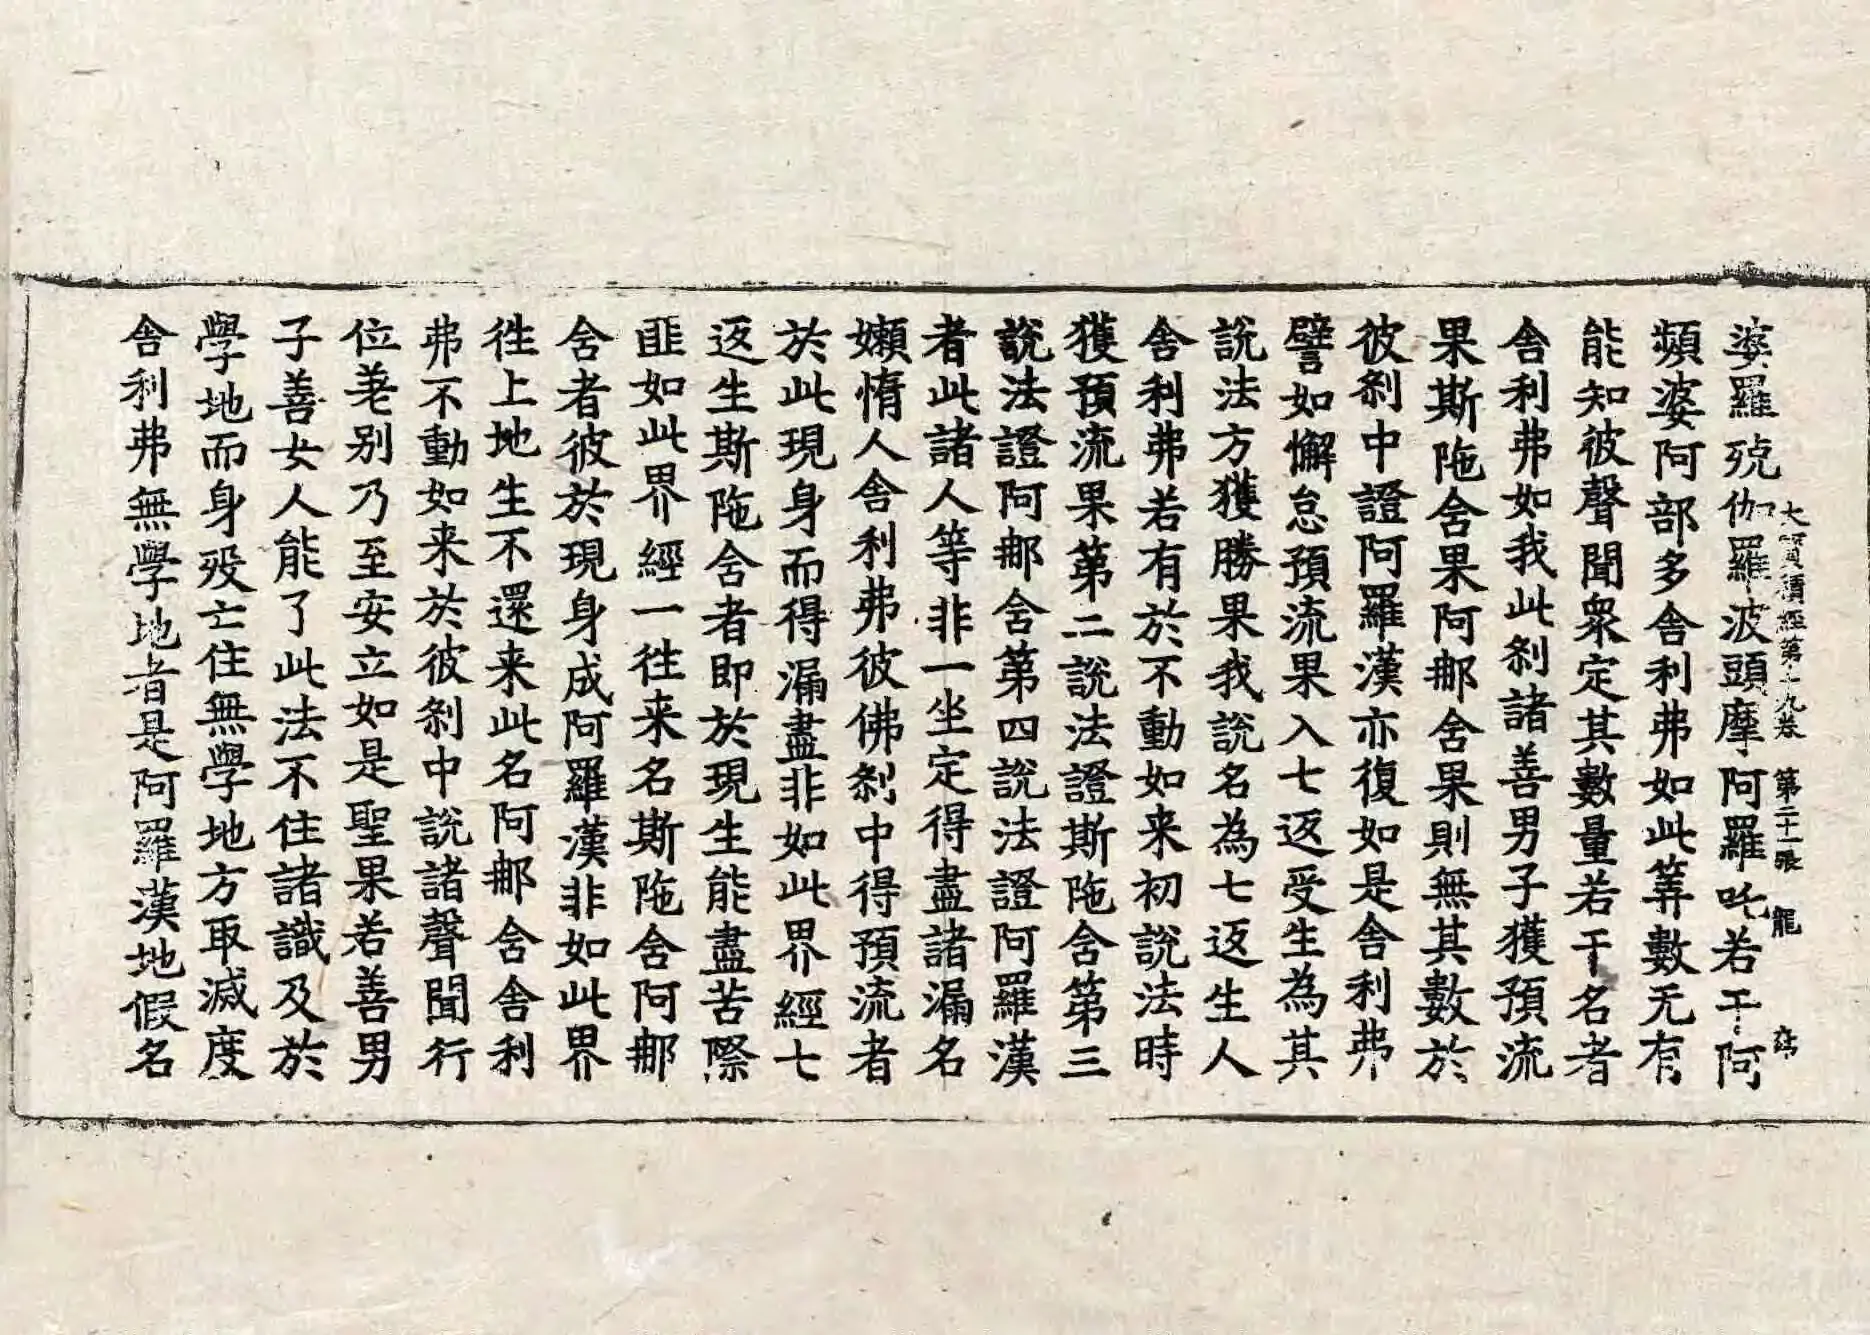 大寶積經第十九卷 第二十一張 龍
婆羅殑伽羅波頭摩阿羅吒若干阿
頻婆阿部多舍利弗如此筭數无有
能知彼聲聞衆定其數量若干名者
舍利弗如我此刹諸善男子獲預流
果斯陁舍果阿那舍果則無其數於
彼刹中證阿羅漢亦復如是舍利弗
譬如懈怠預流果入七返受生為其
說法方獲勝果我說名為七返生人
舍利弗若有於不動如来初說法時
獲預流果第二說法證斯陁含第三
說法證阿那舍第四說法證阿羅漢
者此諸人等非一坐定得盡諸漏名
嬾惰人舍利弗彼佛刹中得預流者
於此現身而得漏盡非如此界經七
返生斯陁舍者即於現生能盡苦際
匪如此界經一往来名斯陁含阿那
舍者彼於現身成阿羅漢非如此界
往上地生不還来此名阿那含舍利
弗不動如来於彼刹中說諸聲聞行
位差别乃至安立如是聖果若善男
子善女人能了此法不住諸識及於
學地而身殁亡住無學地方取滅度
舍利弗無學地者是阿羅漢地假名